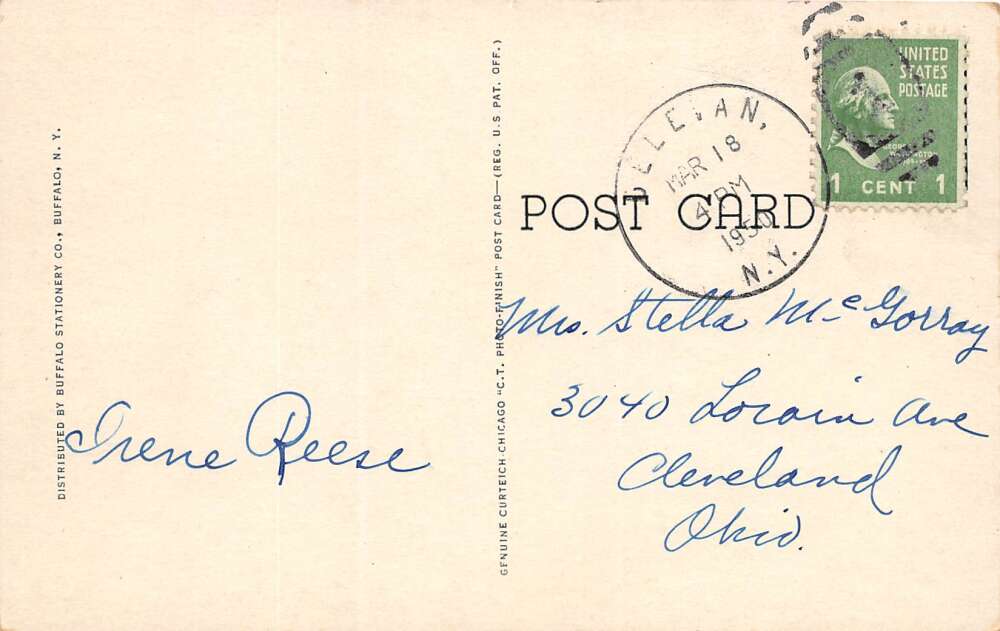 DISTRIBUTED BY BUFFALO STATIONERY CO., BUFFALO, N. Y.
Irene Reese
GENUINE CURTEICH-CHICAGO "C.T. PHOTO-FINISH" POST CARD—(REG. U.S PAT. OFF.)
POST CARD
DELEVAN,
MAR 18
4 PM
1950
N.Y.
UNITED
STATES
POSTAGE
GEORGE
WASHINGTON
1 CENT 1
Mrs. Stella McGorray
3040 Lorain Ave
Cleveland
Ohio.